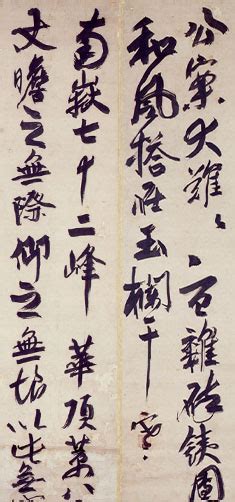 公案大難々百雜碎鐵
和風搭在玉欄干
南嶽七十二峰華頂萬八
丈瞻之無際仰之無以此無